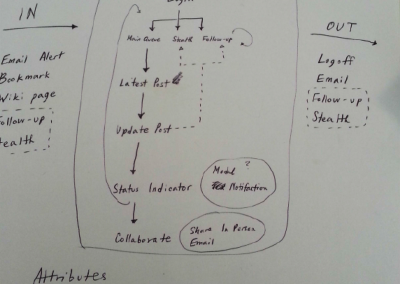 IN
Email Alert
Bookmark
Wiki page
Follow-up
Stealth
Main Queue Stealth Follow-up
Latest Post
Update Post
Status Indicator
Collaborate
Modal ?
Notification
Share In Person
Email
OUT
Logoff
Email
Follow-up
Stealth
Attributes